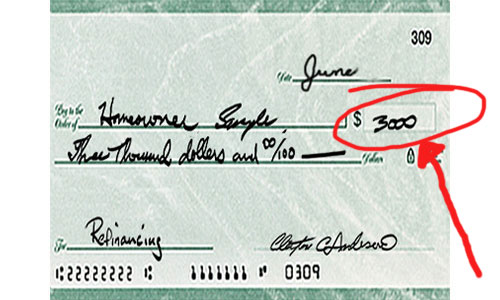 309
Date June
Pay to the Order of Homeowner Google $ 3000
Three Thousand dollars and 00/100 Dollars
For Refinancing
⑆222222222⑆ 1111111⑈ 0309